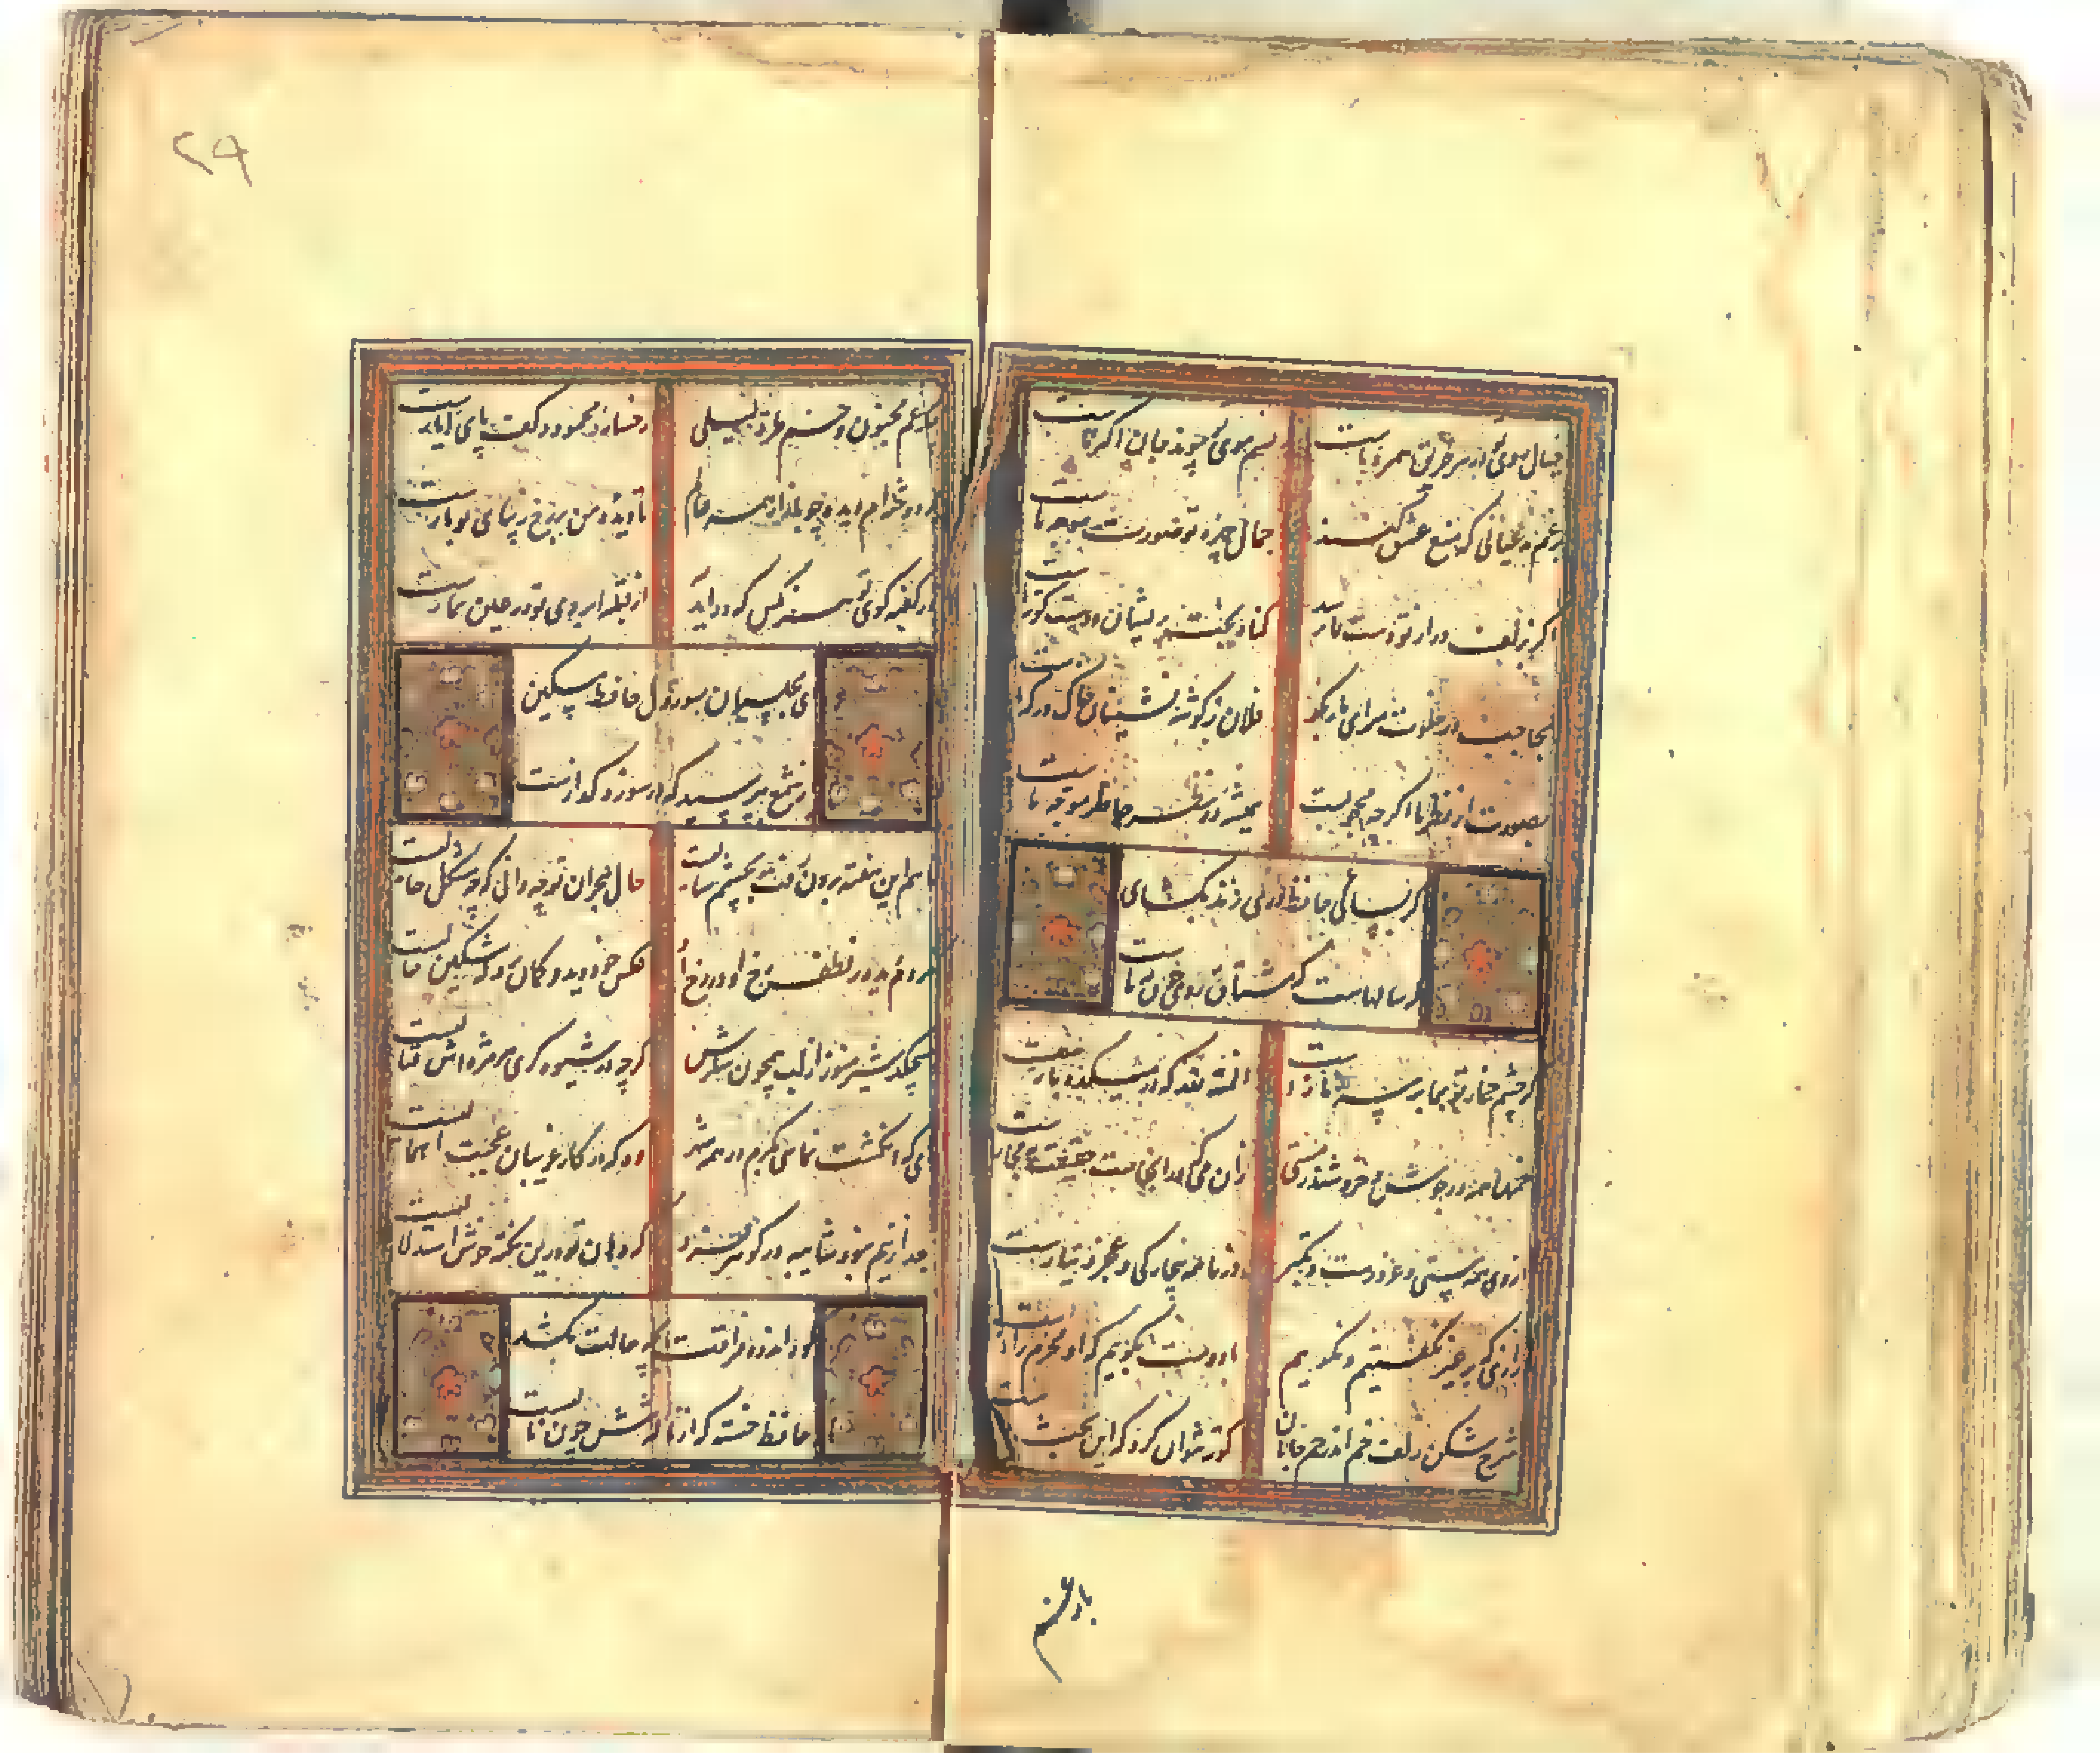 خیال روی تو در هر طریق همره ماست
نسیم موی تو پیوند جان آگه ماست
برغم مدعیانی که منع عشق کنند
جمال چهره تو حجت موجه ماست
اگر بزلف دراز تو دست ما نرسد
گناه بخت پریشان و دست کوته ماست
بحاجب در خلوت سرای ما بگو
فلان ز گوشه نشینان خاک درگه ماست
بصورت از نظر ما اگرچه محجوبست
همیشه در نظر خاطر مرفه ماست
اگر بسالی حافظ دری زند بگشای
که سالهاست که مشتاق روی چون مه ماست
المنة لله که در میکده بازست
خمها همه در جوش و خروشند ز مستی
زان می که در آنجاست حقیقت نه مجازست
از وی همه مستی و غرورست و تکبر
وز ما همه بیچارگی و عجز و نیازست
رازی که بر غیر نگفتیم و نگوییم
با دوست بگوییم که او محرم رازست
شرح شکن زلف خم اندر خم جانان
کوته نتوان کرد که این بحث
بار غم
۲۹
بار غم مجنون و خم طره لیلی
رخساره محمود و کف پای ایازست
بر دوخته‌ام دیده چو باز از همه عالم
تا دیده من بر رخ زیبای تو بازست
در کعبه کوی تو هر آنکس که درآید
از قبله ابروی تو در عین نمازست
ای مجلسیان سوز دل حافظ مسکین
از شمع بپرسید که در سوز و گدازست
ماهم این هفته برون رفت و بچشمم سالیست
حال هجران تو چه دانی که چه مشکل حالیست
مردم دیده ز لطف رخ او در رخ او
عکس خود دید و گمان برد که مشکین خالیست
میچکد شیر هنوز از لب همچون شکرش
گرچه در شیوه گری هر مژه‌اش قتالیست
ای که انگشت نمایی بکرم در همه شهر
وه که در کار غریبان عجبت اهمالیست
بعد ازینم نبود شائبه در جوهر فرد
که دهان تو درین نکته خوش استدلالیست
کوه اندوه فراقت بچه حالت بکشد
حافظ خسته که از ناله تنش چون نالیست